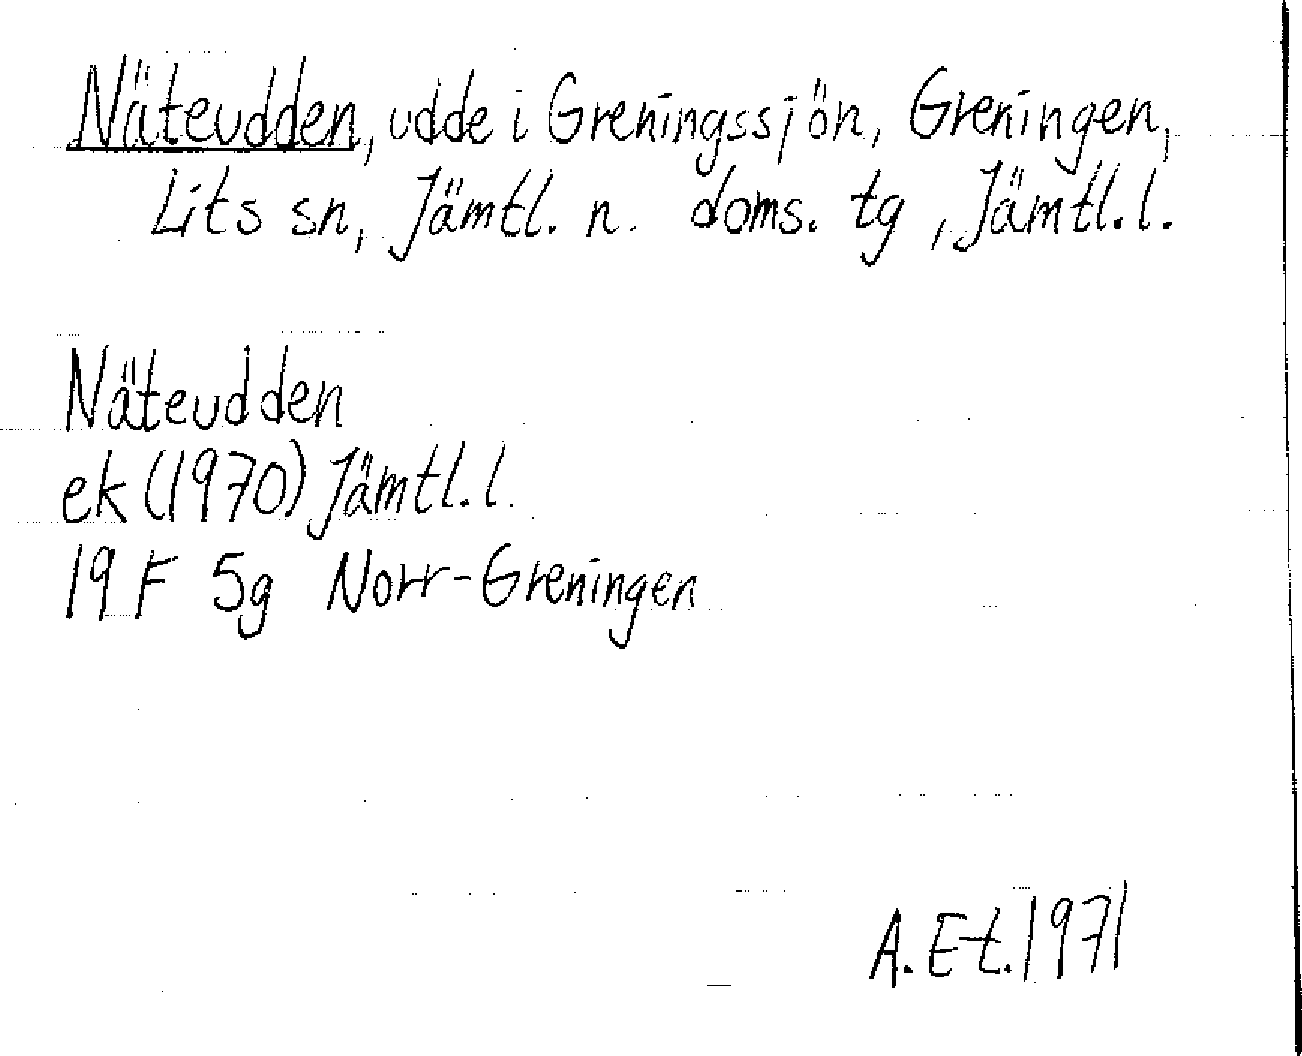 Näteudden, udde i Greningssjön, Greningen,
Lits sn, Jämtl. n. doms. tg, Jämtl. l.
Näteudden
ek (1970) Jämtl. l.
19 F 5g Norr-Greningen
A. Et. 1971